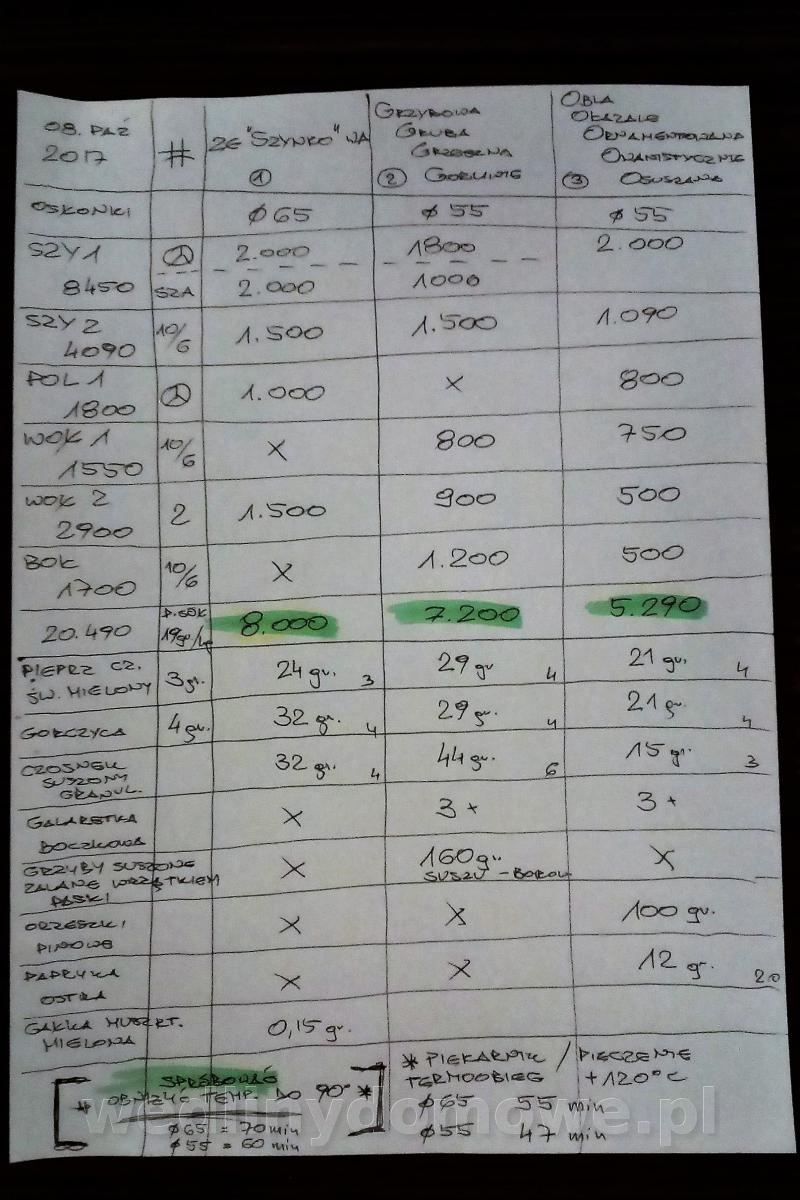 08. PAŹ 2017 # ZE "SZYNKO" WA ① GRZYBOWA GRUBA GRZESZNA ② GORLIWIE OBLA OKAZALE ORNAMENTOWANA ONANISTYCZNIE ③ OSUSZANA
OSKONKI ø 65 ø 55 ø 55
SZY 1 2.000 1800 2.000
8450 SZA 2.000 1000
SZY 2 4090 10/6 1.500 1.500 1.090
POL 1 1800 1.000 X 800
WOK 1 1550 10/6 X 800 750
WOK 2 2900 2 1.500 900 500
BOK 1700 10/6 X 1.200 500
20.490 19gr/kg 8.000 7.200 5.290
PIEPRZ CZ. ŚW. MIELONY 3gr. 24 gr. 3 29 gr 4 21 gr. 4
GORCZYCA 4gr. 32 gr. 4 29 gr. 4 21 gr. 4
CZOSNEK SUSZONY GRANUL. 32 gr. 4 44 gr. 6 15 gr. 3
GALARETKA BOCZKOWA X 3 + 3 +
GRZYBY SUSZONE ZALANE WRZĄTKIEM PASKI X 160 gr. SUSZU - BOROW X
ORZESZKI PINIOWE X X 100 gr.
PAPRYKA OSTRA X X 12 gr. 2.0
GAŁKA MUSZKT. MIELONA 0,15 gr.
SPRÓBOWAĆ
* OBNIŻYĆ TEMP. DO 90° *
ø 65 = 70 min
ø 55 = 60 min
* PIEKARNIK / PIECZENIE
TERMOOBIEG +120°C
ø 65 55 min
ø 55 47 min
wedlinydomowe.pl